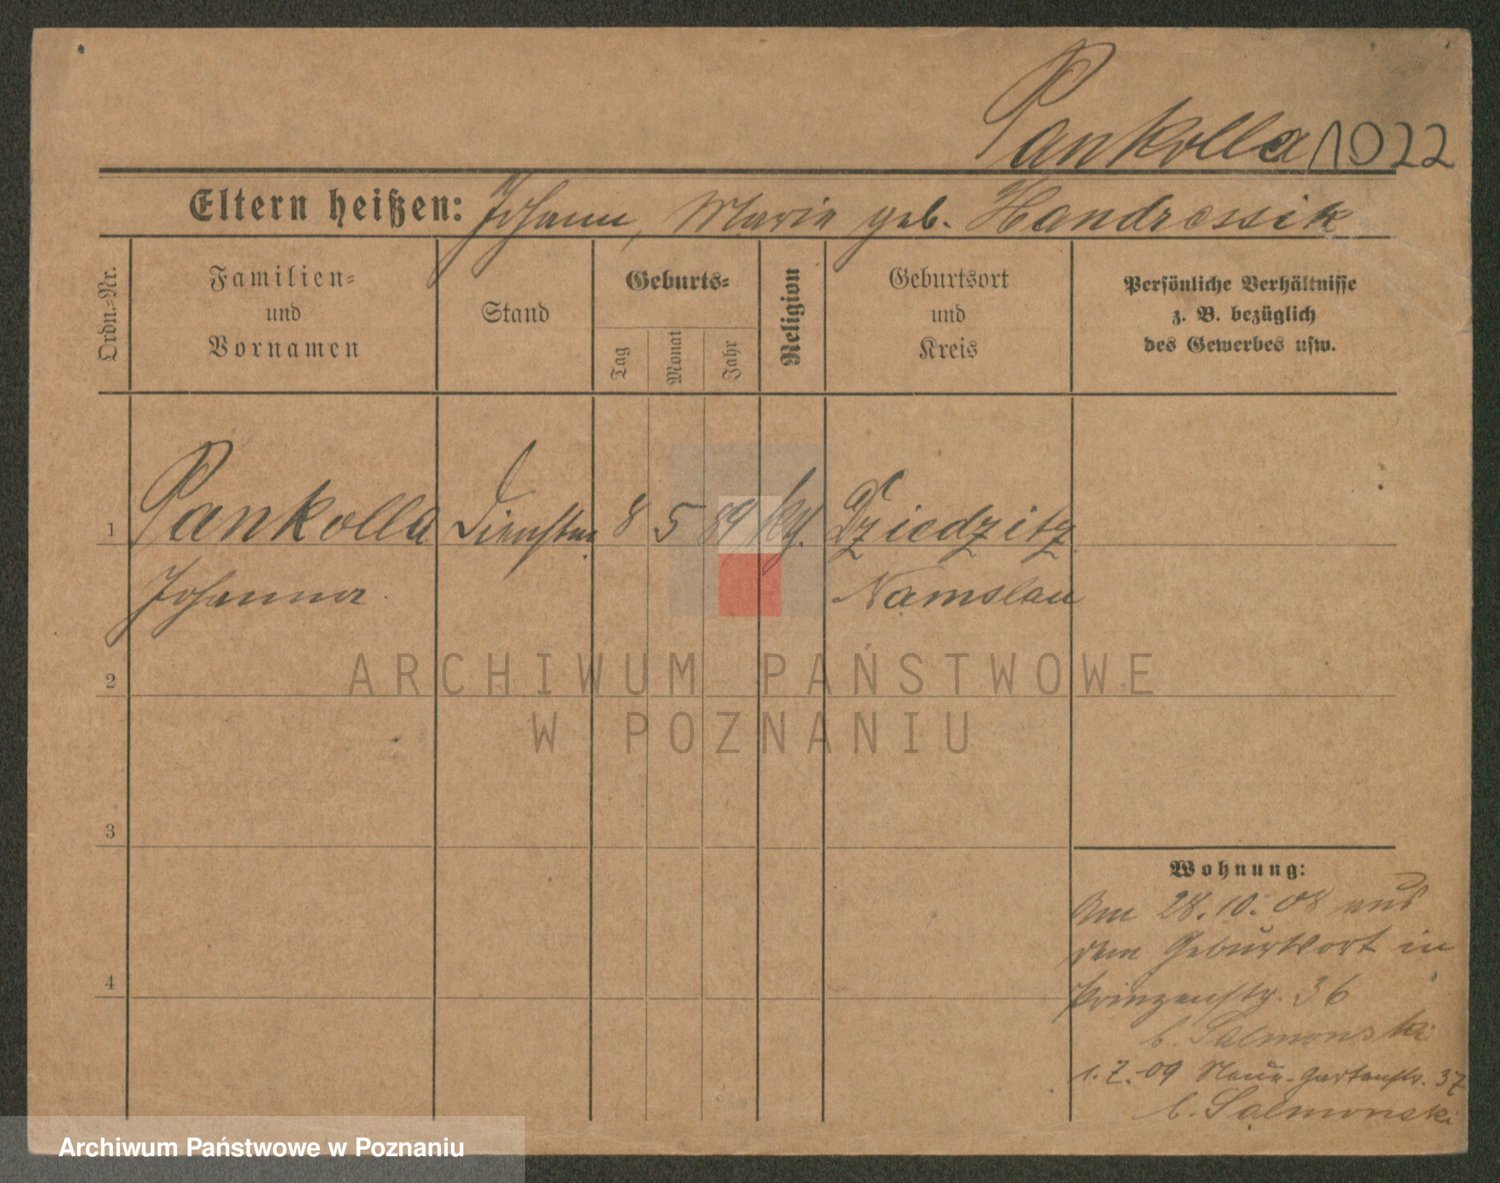 Pankolla 1022
Eltern heißen: Johann, Marie geb. Handressik
Ordn.-Nr.
Familien-
und
Vornamen
Stand
Geburts-
Tag
Monat
Jahr
Religion
Geburtsort
und
Kreis
Persönliche Verhältnisse
z. B. bezüglich
des Gewerbes usw.
1 Pankolla Dienstm. 8 5 89 kg. Dziedzitz
Johanna Namslau
2
3
4
Wohnung:
Am 28.10.08 aus
dem Geburtsort in
Prinzenstr. 36
b. Salmonski
1.7.09 Neue-Gartenstr. 37
b. Salmonski
ARCHIWUM PAŃSTWOWE
W POZNANIU
Archiwum Państwowe w Poznaniu